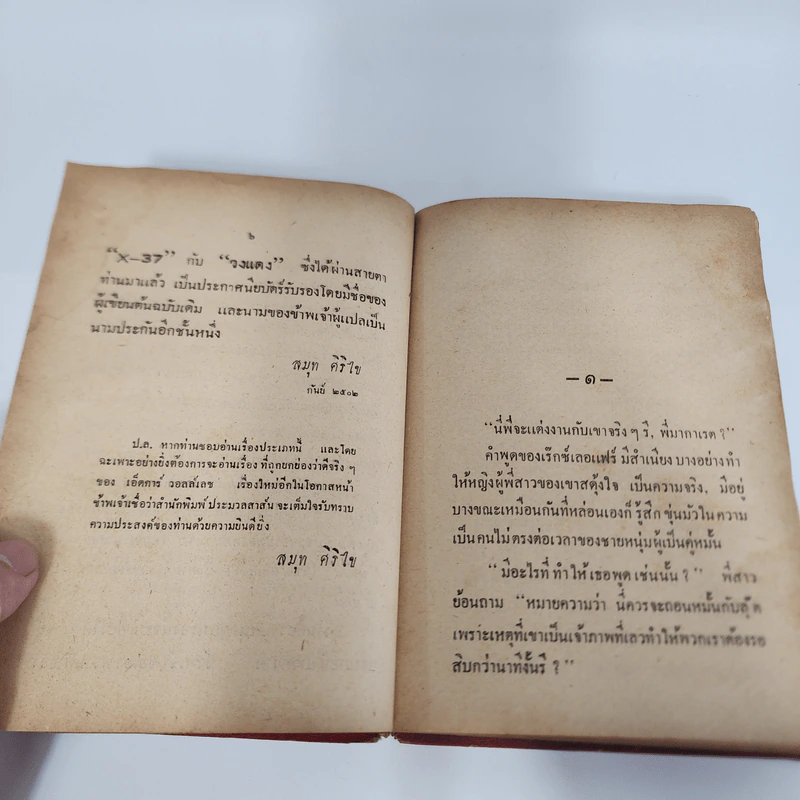 ๖
“X—37” กับ “วงแดง” ซึ่งได้ผ่านสายตา
ท่านมาแล้ว เป็นประกาศนียบัตร์รับรองโดยมีชื่อของ
ผู้เขียนต้นฉบับเดิม และนามของข้าพเจ้าผู้แปลเป็น
นามประกันอีกชั้นหนึ่ง
สมุท ศิริไข
กันย์ ๒๕๐๒
ป.ล. หากท่านชอบอ่านเรื่องประเภทนี้ และโดย
ฉะเพาะอย่างยิ่งต้องการจะอ่านเรื่อง ที่ถูกยกย่องว่าดีจริง ๆ
ของ เอ็ดการ์ วอลล์เลซ เรื่องใหม่อีกในโอกาสหน้า
ข้าพเจ้าเชื่อว่าสำนักพิมพ์ ประมวลสาส์น จะเต็มใจรับทราบ
ความประสงค์ของท่านด้วยความยินดียิ่ง
สมุท ศิริไข
— ๑ —
“นี่พี่จะแต่งงานกับเขาจริง ๆ รึ, พี่มากาเรต ?”
คำพูดของเร๊กซ์เลอแฟร์ มีสำเนียง บางอย่างทำ
ให้หญิงผู้พี่สาวของเขาสดุ้งใจ เป็นความจริง, มีอยู่
บางขณะเหมือนกันที่หล่อนเองก็ รู้สึก ขุ่นมัวใน ความ
เป็น คนไม่ ตรงต่อเวลาของชายหนุ่มผู้เป็นคู่หมั้น
“ มีอะไรที่ ทำให้ เธอพูด เช่นนั้น ? ” พี่สาว
ย้อนถาม “หมายความว่า นี่ควรจะถอนหมั้นกับลุ๊ค
เพราะเหตุที่เขาเป็นเจ้าภาพที่เลวทำให้พวกเราต้องรอ
สิบกว่านาทีงั้นรึ ? ”